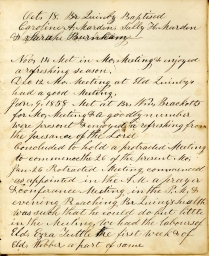 Oct. 18. Br Quinby Baptised
Caroline A. Marden Sally H. Mardon
& Sarah Burnham
Nov 14 Met in Mo. Meeting & enjoyed
a refreshing season.
Dec 12 Mo. Meeting at Eld Quinbys
had a good Meeting.
Jan. 9. 1839. Met at Br Wm Bracketts
for Mo Meeting & a goodly number
were present & enjoyed a refreshing from
the presence of the Lord
Concluded to hold a protracted Meeting
to commence the 26 of the present Mo.
Jan 26 Protracted Meeting commenced
as appointed in the A.M. a prayer
& conference Meeting, in the P.M. &
evening Preaching, Br Quinby's health
was such that he could do but little
in the Meeting. We had the labours of
Eld. Ezra Tuttle the first week & of
Eld. Webber a part of same